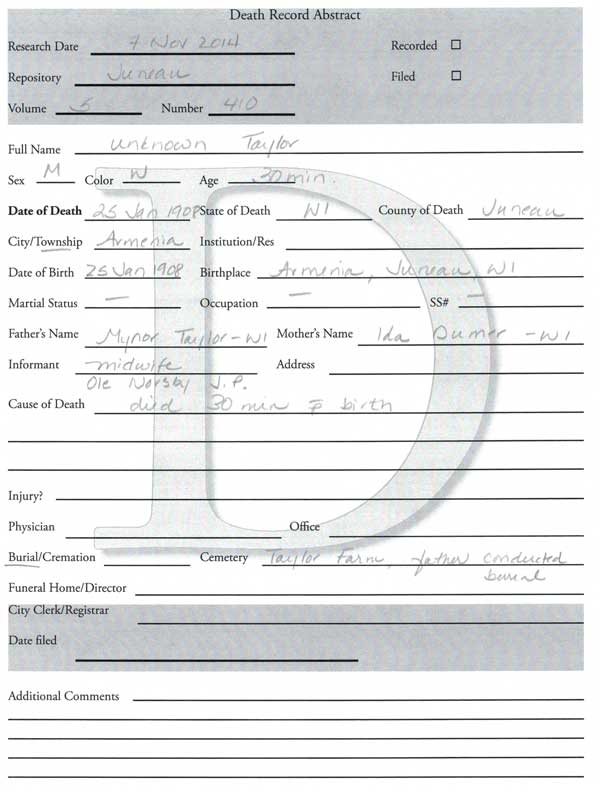 Death Record Abstract
Research Date 7 Nov 2014 Recorded ☐
Repository Juneau Filed ☐
Volume 5 Number 410
Full Name unknown Taylor
Sex M Color W Age 30 min.
Date of Death 25 Jan 1908 State of Death WI County of Death Juneau
City/Township Armenia Institution/Res
Date of Birth 25 Jan 1908 Birthplace Armenia, Juneau, WI
Martial Status — Occupation — SS# —
Father's Name Mynor Taylor-WI Mother's Name Ida Dumer -WI
Informant midwife Address
Ole Norsby J.P.
Cause of Death died 30 min p̄ birth
Injury?
Physician Office
Burial/Cremation Cemetery Taylor Farm, father conducted
burial
Funeral Home/Director
City Clerk/Registrar
Date filed
Additional Comments
D